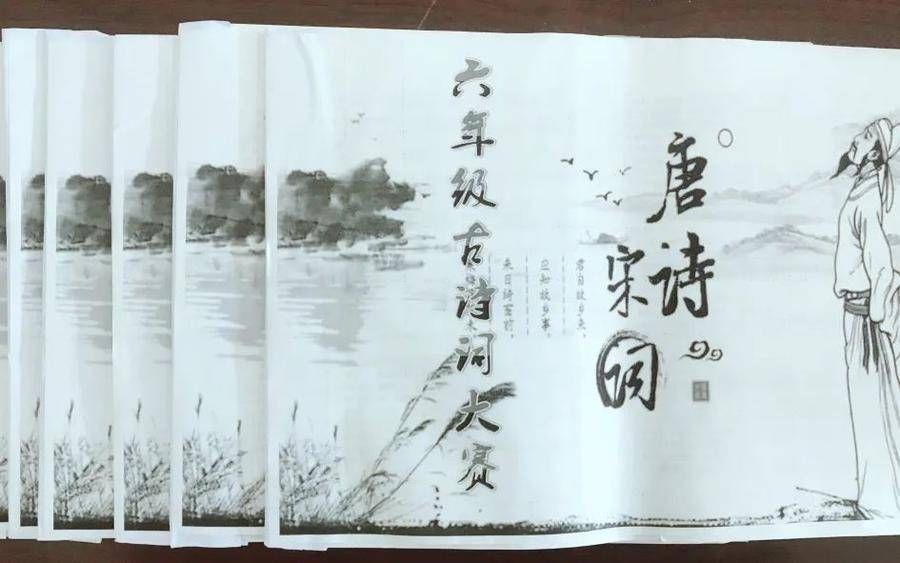 唐诗
宋词
君自故乡来，
应知故乡事。
来日绮窗前，
六年级古诗词大赛